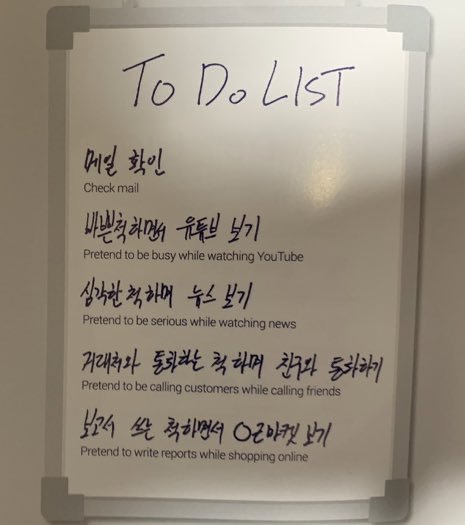 TO DO LIST
메일 확인
Check mail
바쁜척하면서 유튜브 보기
Pretend to be busy while watching YouTube
심각한 척하며 뉴스 보기
Pretend to be serious while watching news
거래처와 통화하는 척 하며 친구와 통화하기
Pretend to be calling customers while calling friends
보고서 쓰는 척하면서 O근마켓 보기
Pretend to write reports while shopping online